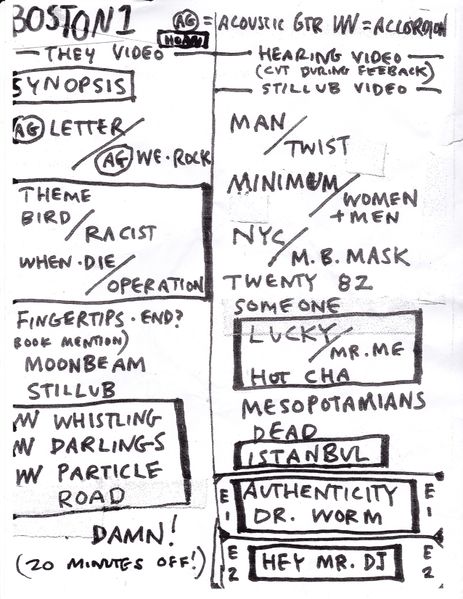 BOSTON 1
AG = ACOUSTIC GTR VV = ACCORDION
HORN
THEY VIDEO
SYNOPSIS
AG LETTER /
AG WE·ROCK
THEME
BIRD /
RACIST
WHEN·DIE /
OPERATION
FINGERTIPS·END?
(BOOK MENTION)
MOONBEAM
STILLUB
VV WHISTLING
VV DARLINGS
VV PARTICLE
ROAD
DAMN!
(20 MINUTES OFF!)
HEARING VIDEO
(CUT DURING FEEBACK)
STILLUB VIDEO
MAN /
TWIST
MINIMUM /
WOMEN
+ MEN
NYC /
M.B. MASK
TWENTY 82
SOMEONE
LUCKY /
MR. ME
HOT CHA
MESOPOTAMIANS
DEAD
ISTANBUL
E1 AUTHENTICITY E1
DR. WORM
E2 HEY MR. DJ E2